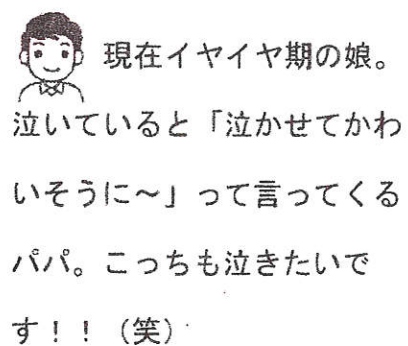 現在イヤイヤ期の娘。
泣いていると「泣かせてかわ
いそうに〜」って言ってくる
パパ。こっちも泣きたいで
す！！（笑）